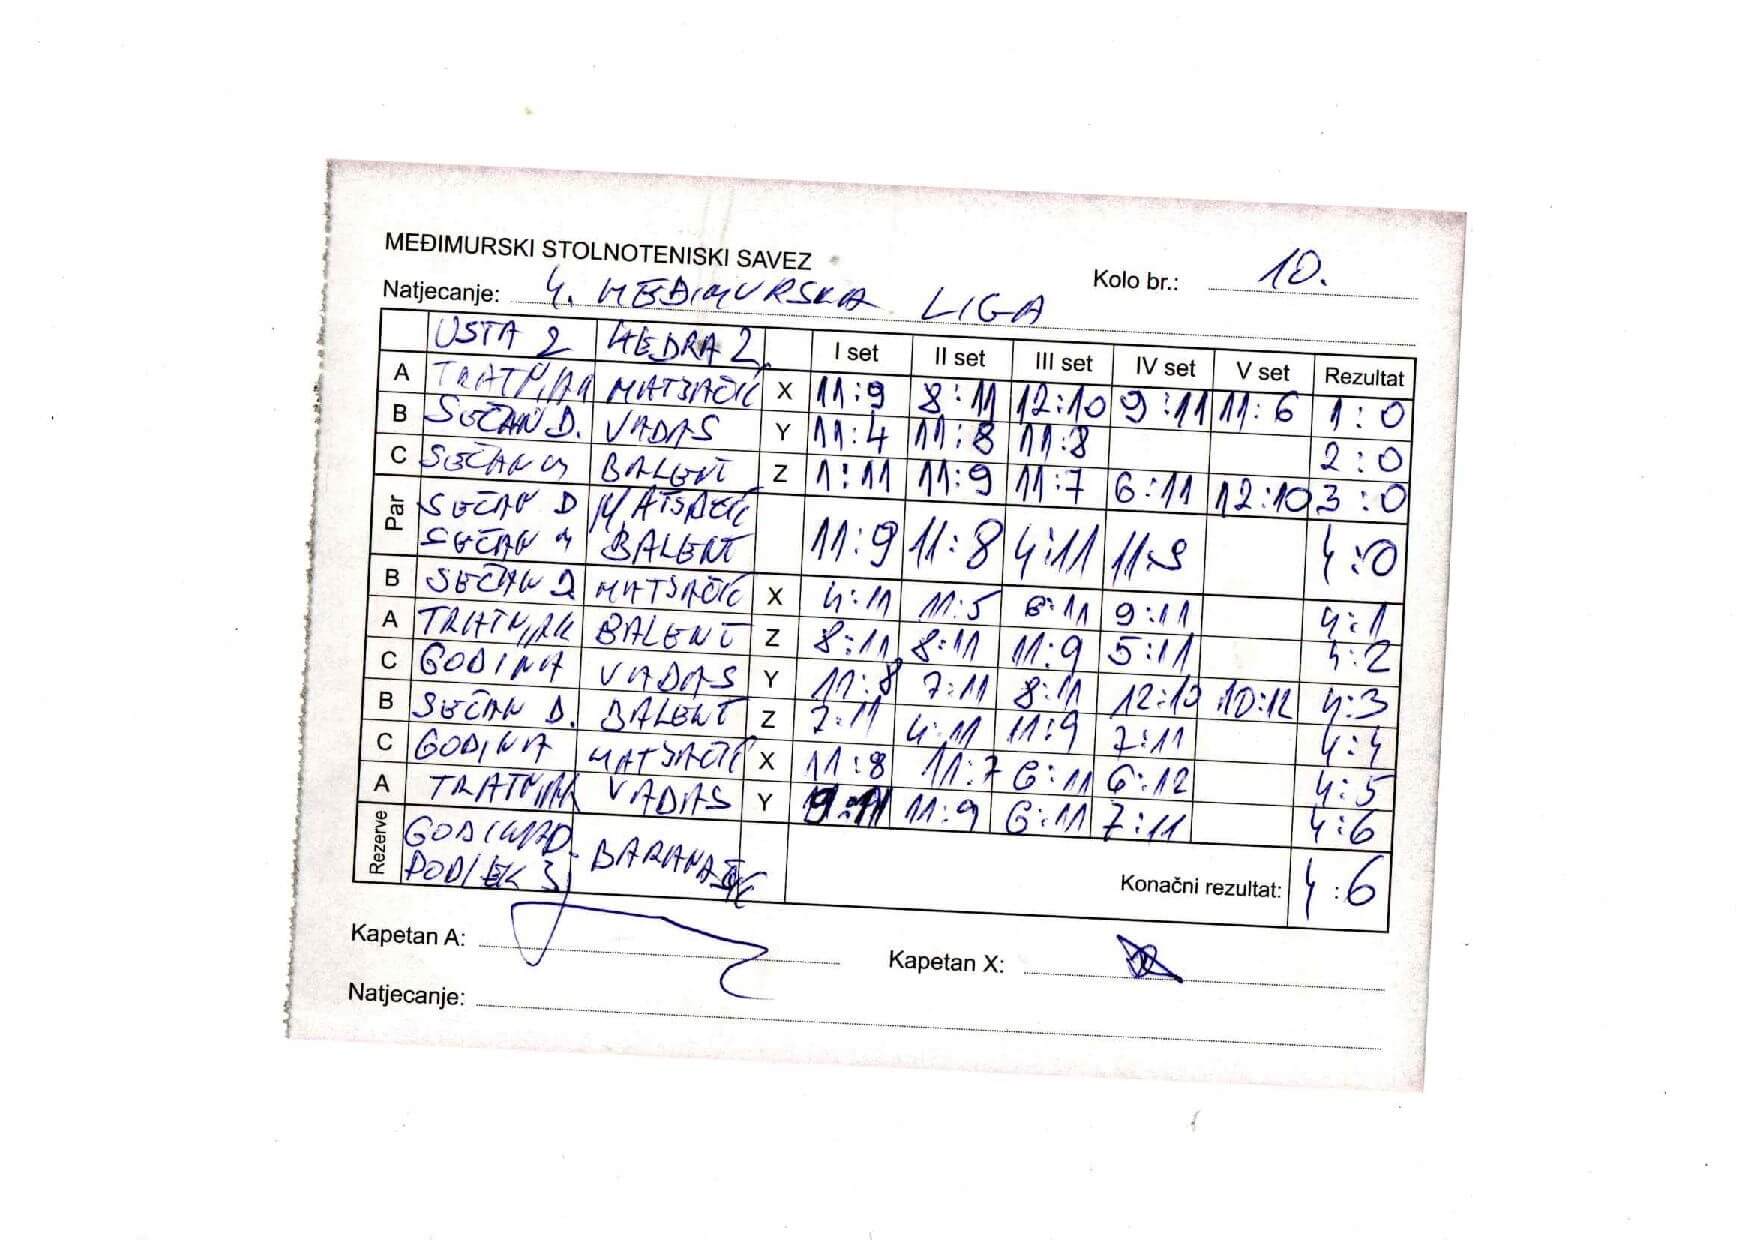 MEĐIMURSKI STOLNOTENISKI SAVEZ
Kolo br.: 10.
Natjecanje: 4. MEĐIMURSKA LIGA
USTA 2 HEDRA 2 I set II set III set IV set V set Rezultat
A TRATNJAK MATJAČIĆ X 11:9 8:11 12:10 9:11 11:6 1:0
B SEČAN D. VADAS Y 11:4 11:8 11:8 2:0
C SEČAN M BALENT Z 1:11 11:9 11:7 6:11 12:10 3:0
Par SEČAN D MATJAČIĆ
SEČAN M BALENT 11:9 11:8 4:11 11:9 4:0
B SEČAN D MATJAČIĆ X 4:11 11:5 6:11 9:11 4:1
A TRATNJAK BALENT Z 8:11 8:11 11:9 5:11 4:2
C GODINA VADAS Y 11:8 7:11 8:11 12:10 10:12 4:3
B SEČAN D. BALENT Z 7:11 4:11 11:9 7:11 4:4
C GODINA MATJAČIĆ X 11:8 11:7 6:11 6:12 4:5
A TRATNJAK VADAS Y 9:11 11:9 6:11 7:11 4:6
Rezerve GODINA D.
Konačni rezultat: 4:6
Kapetan A:
Kapetan X:
Natjecanje: